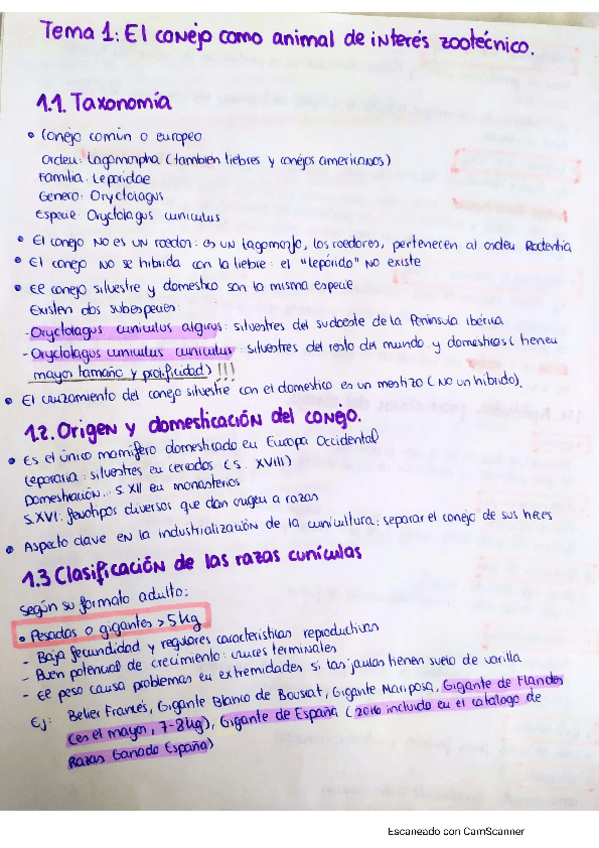 Tema 1: El conejo como animal de interés zootécnico.
1.1. Taxonomía
• Conejo común o europeo
Orden: Lagomorpha (también liebres y conejos americanos)
Familia: Leporidae
Género: Oryctolagus
Especie: Oryctolagus cuniculus
• El conejo NO es UN roedor: es UN lagomorfo, los roedores, pertenecen al orden Rodentia
• El conejo NO se hibrida con la liebre: el "lepórido" NO existe
• El conejo silvestre y domestico son la misma especie
Existen dos subespecies:
- Oryctolagus cuniculus algirus: silvestres del sudoeste de la Península ibérica
- Oryctolagus cuniculus cuniculus: silvestres del resto del mundo y domesticos (tienen
mayor tamaño y prolificidad) !!!
• El cruzamiento del conejo silvestre con el domestico es un mestizo (NO un híbrido).
1.2. Origen y domesticación del conejo.
• Es el único mamífero domesticado en Europa Occidental
Leporaria: silvestres en cercados (S. XVIII)
Domesticación... S. XII en monasterios
S.XVI: fenotipos diversos que dan origen a razas
• Aspecto clave en la industrialización de la cunicultura: separar el conejo de sus heces
1.3 Clasificación de las razas cunículas
Según su formato adulto:
• Pesadas o gigantes > 5 kg
- Baja fecundidad y regulares características reproductivas
- Buen potencial de crecimiento: cruces terminales
- El peso causa problemas en extremidades si las jaulas tienen suelo de varilla
Ej: Belier Francés, Gigante Blanco de Bouscat, Gigante Mariposa, Gigante de Flandes
(es el mayor, 7-8 kg), Gigante de España (2016 incluido en el catálogo de
Razas Ganado España)
Escaneado con CamScanner